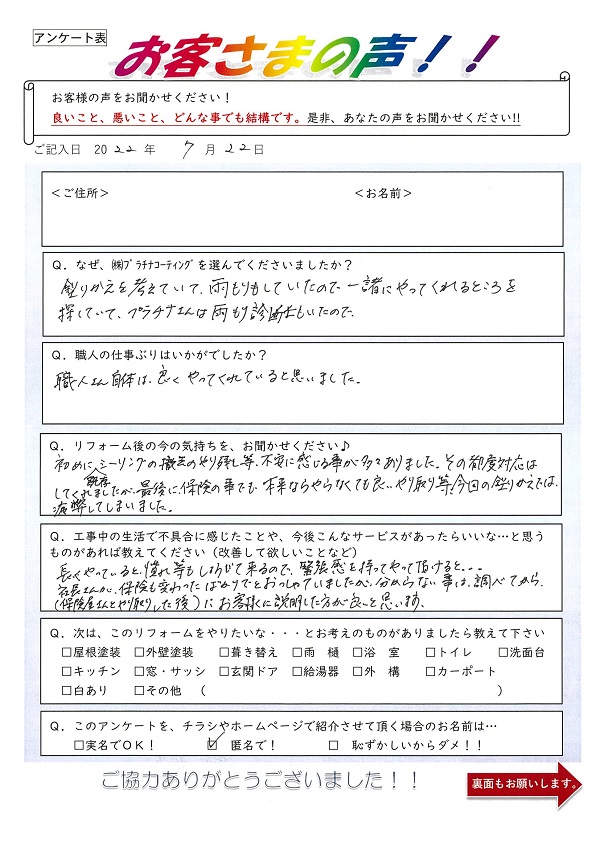 アンケート表
お客さまの声！！
お客様の声をお聞かせください！
良いこと、悪いこと、どんな事でも結構です。是非、あなたの声をお聞かせください!!
ご記入日 2022 年 7 月 22 日
＜ご住所＞ ＜お名前＞
Q．なぜ、㈱ﾌﾟﾗﾁﾅｺｰﾃｨﾝｸﾞを選んでくださいましたか？
塗りかえを考えていて、雨もりもしていたので一諸にやってくれるところを
探していて、プラチナさんは雨もり診断士もいたので。
Q．職人の仕事ぶりはいかがでしたか？
職人さん自体は、良くやってくれていると思いました。
Q．リフォーム後の今の気持ちを、お聞かせください♪
初めに、既存シーリングの撤去のやり残し等、不安に感じる事が多々ありました。その都度対応は
してくれましたが、最後に、保険の事でも、本来ならやらなくても良いやり取り等、今回の塗りかえでは、
疲弊してしまいました。
Q．工事中の生活で不具合に感じたことや、今後こんなサービスがあったらいいな…と思う
ものがあれば教えてください（改善して欲しいことなど）
長くやっていると慣れ等も出てくるので、緊張感を持ってやって頂けると...
社長さんが、保険も変わったばかりでとおっしゃていましたが、分からない事は、調べてから、
(保険屋さんとやり取りした後)にお客様に説明した方が良いと思います。
Q．次は、このリフォームをやりたいな・・・とお考えのものがありましたら教えて下さい
□屋根塗装 □外壁塗装 □葺き替え □雨 樋 □浴 室 □トイレ □洗面台
□キッチン □窓・サッシ □玄関ドア □給湯器 □外 構 □カーポート
□白あり □その他 （ ）
Q．このアンケートを、チラシやホームページで紹介させて頂く場合のお名前は…
□実名でOK！ ☑ 匿名で！ □ 恥ずかしいからダメ！！
ご協力ありがとうございました！！
裏面もお願いします。